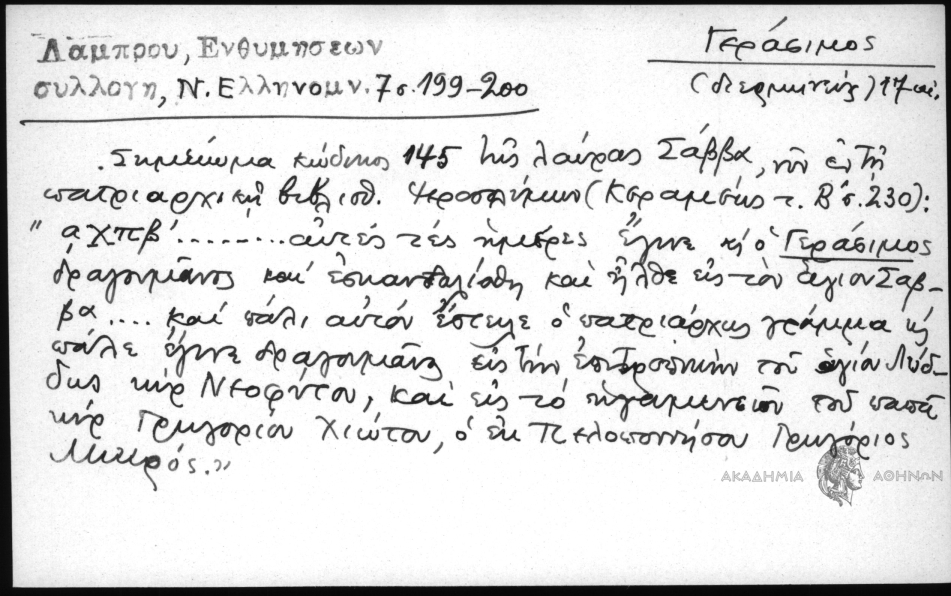 Λάμπρου, Ενθυμήσεων
συλλογη, Ν. Ελληνομν. 7 σ. 199-200
Γεράσιμος
(διερμηνεύς) 17 αἰ.
Σημείωμα κώδικος 145 τῆς λαύρας Σάββα, νῦν ἐν τῇ
πατριαρχικῇ βιβλιοθ. Ἱεροσολύμων (Κεραμεὺς τ. Β' σ. 230):
"αχπβ'......... αὐτὲς τὲς ἡμέρες ἔγινε κὶ ὁ Γεράσιμος
δραγουμᾶνος καὶ ἐσκανταλίσθη καὶ ἦλθε εἰς τὸν ἅγιον Σάβ-
βα.... καὶ πάλι αὐτὸν ἔστειλε ὁ πατριάρχης γράμμα κὶ
πάλε ἔγινε δραγουμᾶνος εἰς τὴν ἐπιτροπικὴν τοῦ ἁγίου Λύδ-
δης κὺρ Νεοφύτου, καὶ εἰς τὸ ἡγουμενεῖον τοῦ παπᾶ
κὺρ Γρηγορίου Χιώτου, ὁ ἐκ Πελοποννήσου Γρηγόριος
Μικρός."
ΑΚΑΔΗΜΙΑ ΑΘΗΝΩΝ